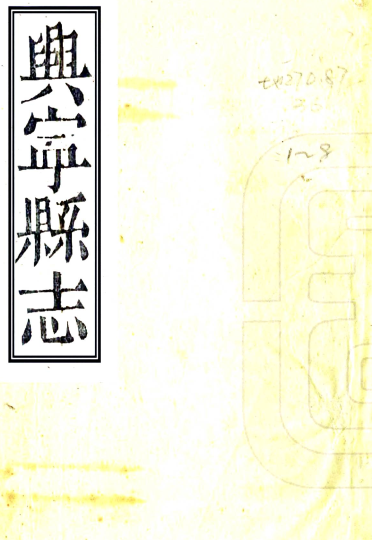 興寧縣志
1~8